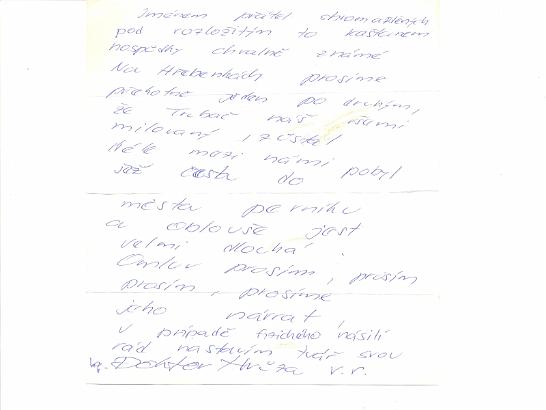 Jménem přátel shromážděných
pod rozložitým to kaštanem
hospůdky chvalně známé
Na Hřebenkách prosíme
překotně jeden po druhým,
že Trubač náš všemi
milovaný, zůstal
déle mezi námi pobyl
než cesta do
města perníku
a oblouše jest
velmi dlouhá.
Omluv prosím, prosím
prosím, prosíme
jeho návrat,
v případě fyzického násilí
rád nastavím tvář svou
Doktor Hrůza v.r.